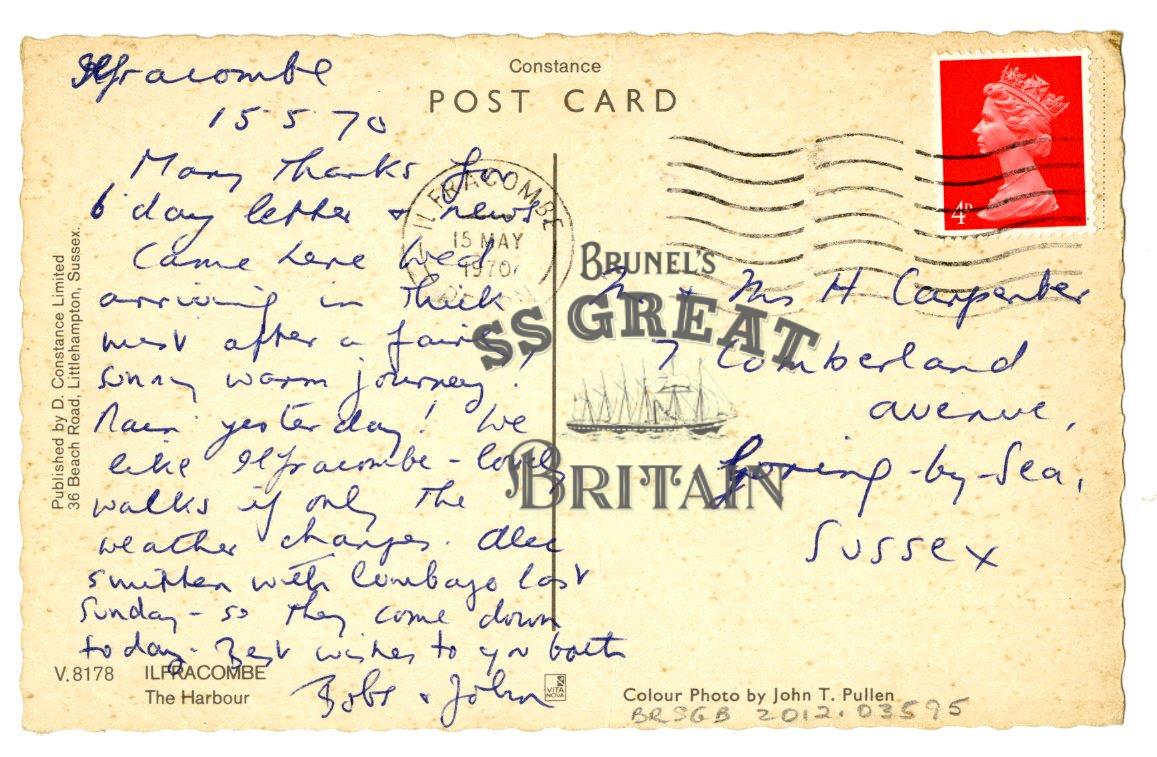 Constance
POST CARD
Ilfracombe
15 5 70
Many thanks for
b'day letter & news.
Came here Wed
arriving in thick
mist after a fair
sunny warm journey!
Rain yesterday! We
like Ilfracombe - lovely
walks if only the
weather changes. Alec
smitten with lumbago last
Sunday - so they come down
today. Best wishes to you both
Bobs & John
ILFRACOMBE
15 MAY
1970
DEVON
4D
Mr. & Mrs H Carpenter
7 Cumberland
avenue,
Goring-by-Sea,
Sussex
BRUNEL'S
SS GREAT
BRITAIN
Published by D. Constance Limited
36 Beach Road, Littlehampton, Sussex.
V.8178 ILFRACOMBE
The Harbour
VITA
NOVA
Colour Photo by John T. Pullen
BRSGB 2012.03595